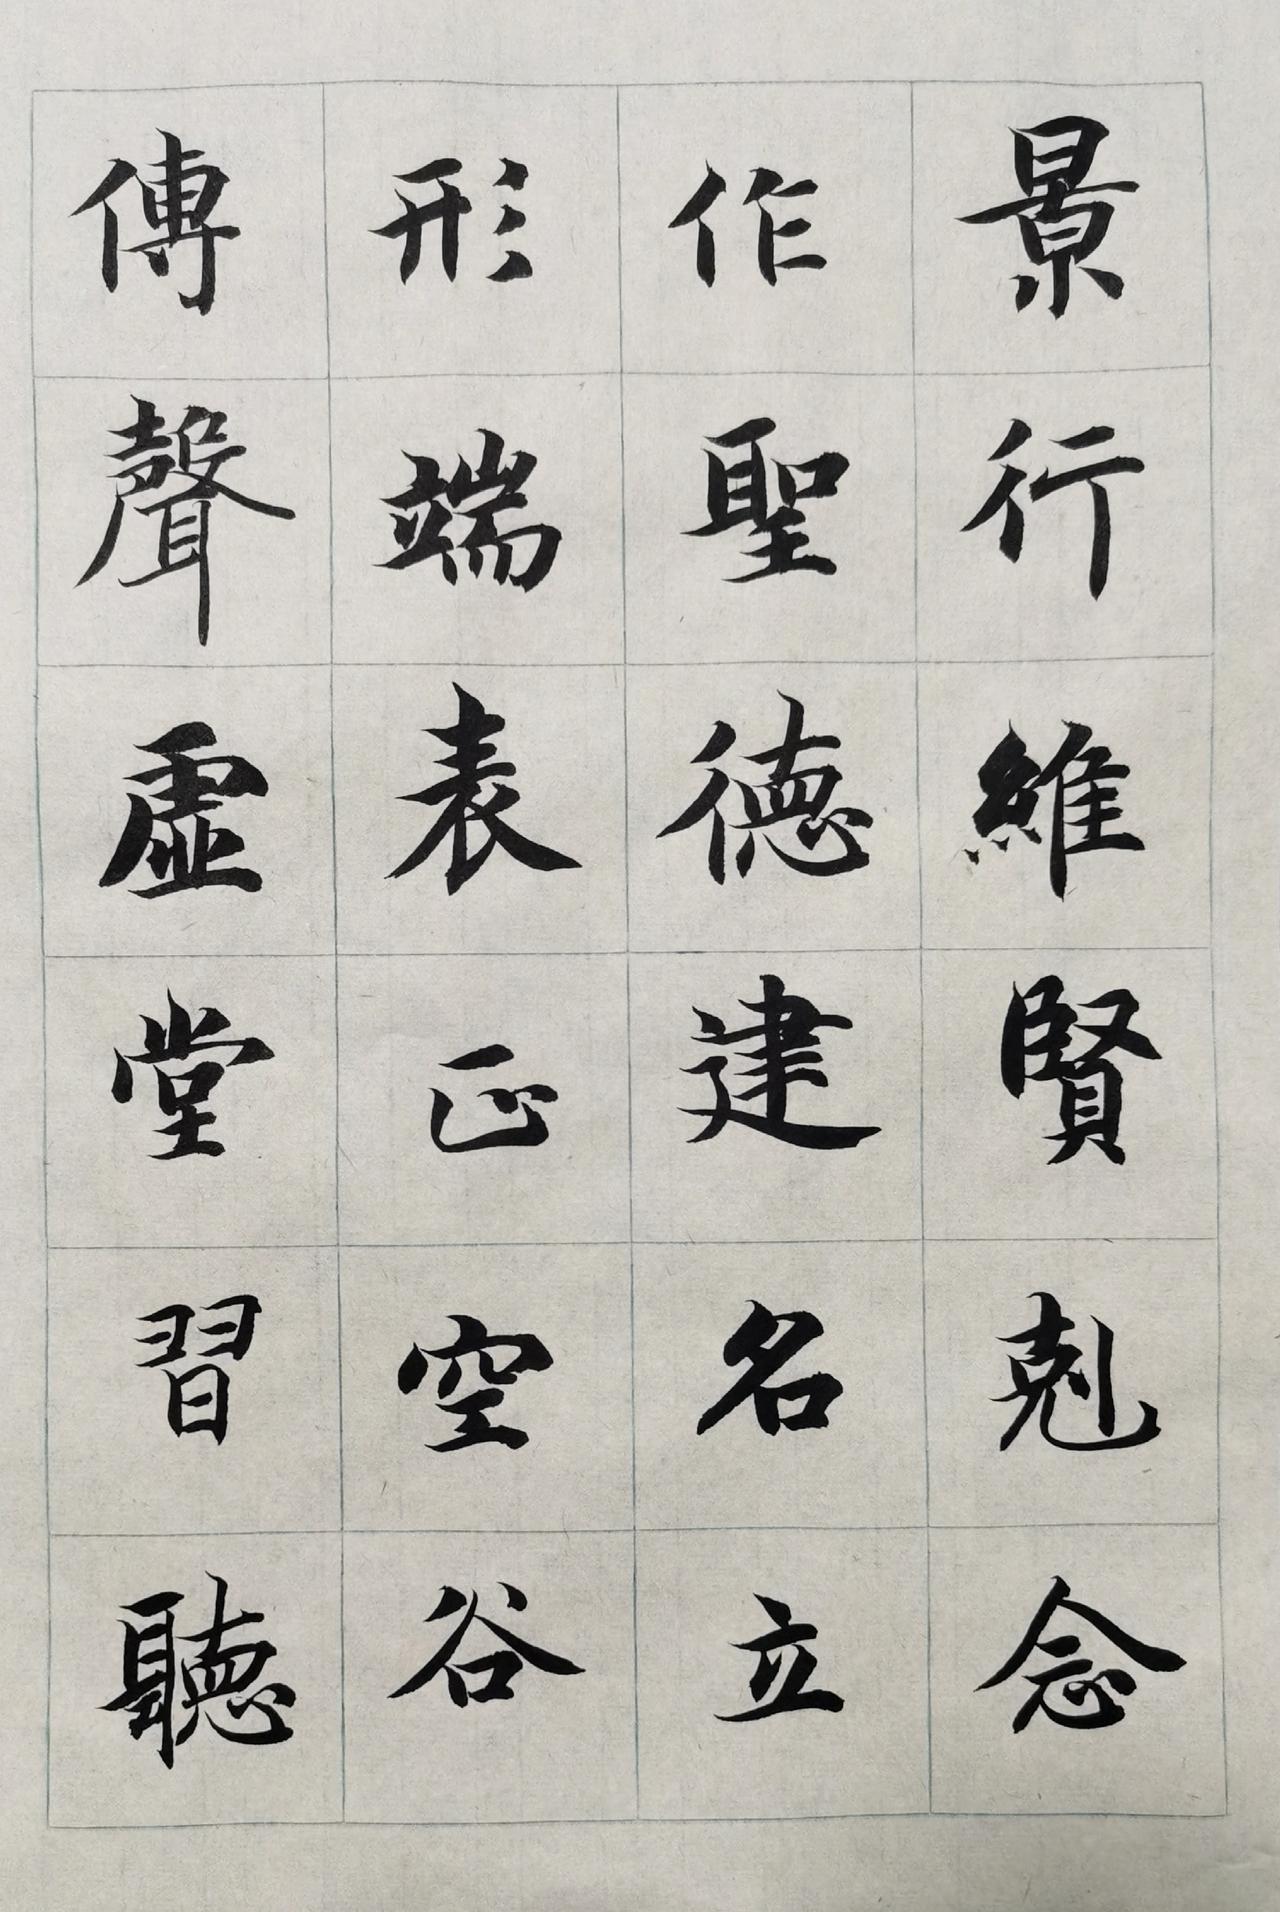 景行維賢剋念
作聖德建名立
形端表正空谷
傳聲虛堂習聽